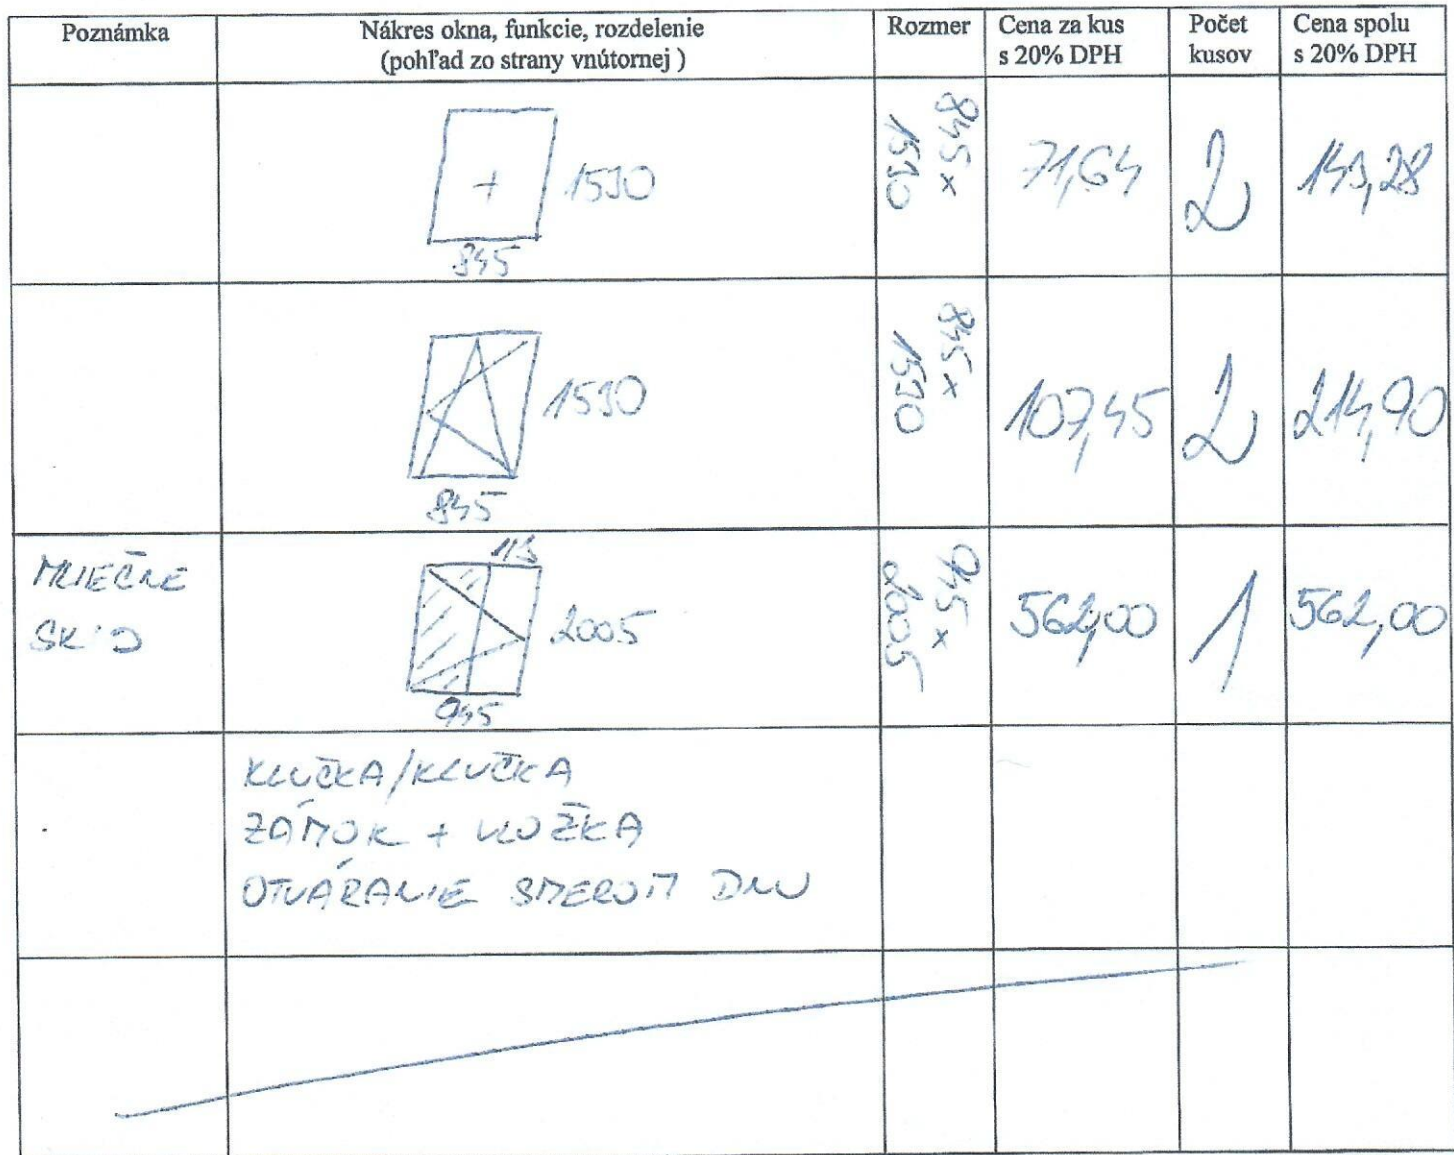 Poznámka
Nákres okna, funkcie, rozdelenie
(pohľad zo strany vnútornej )
Rozmer
Cena za kus
s 20% DPH
Počet
kusov
Cena spolu
s 20% DPH
1530
845
845 x
1530
71,64
2
143,28
1530
845
845 x
1530
107,45
2
214,90
MLIEČNE
SKLO
2005
945
945 x
2005
562,00
1
562,00
KLUČKA/KLUČKA
ZÁMOK + VLOŽKA
OTVÁRANIE SMEROM DNU